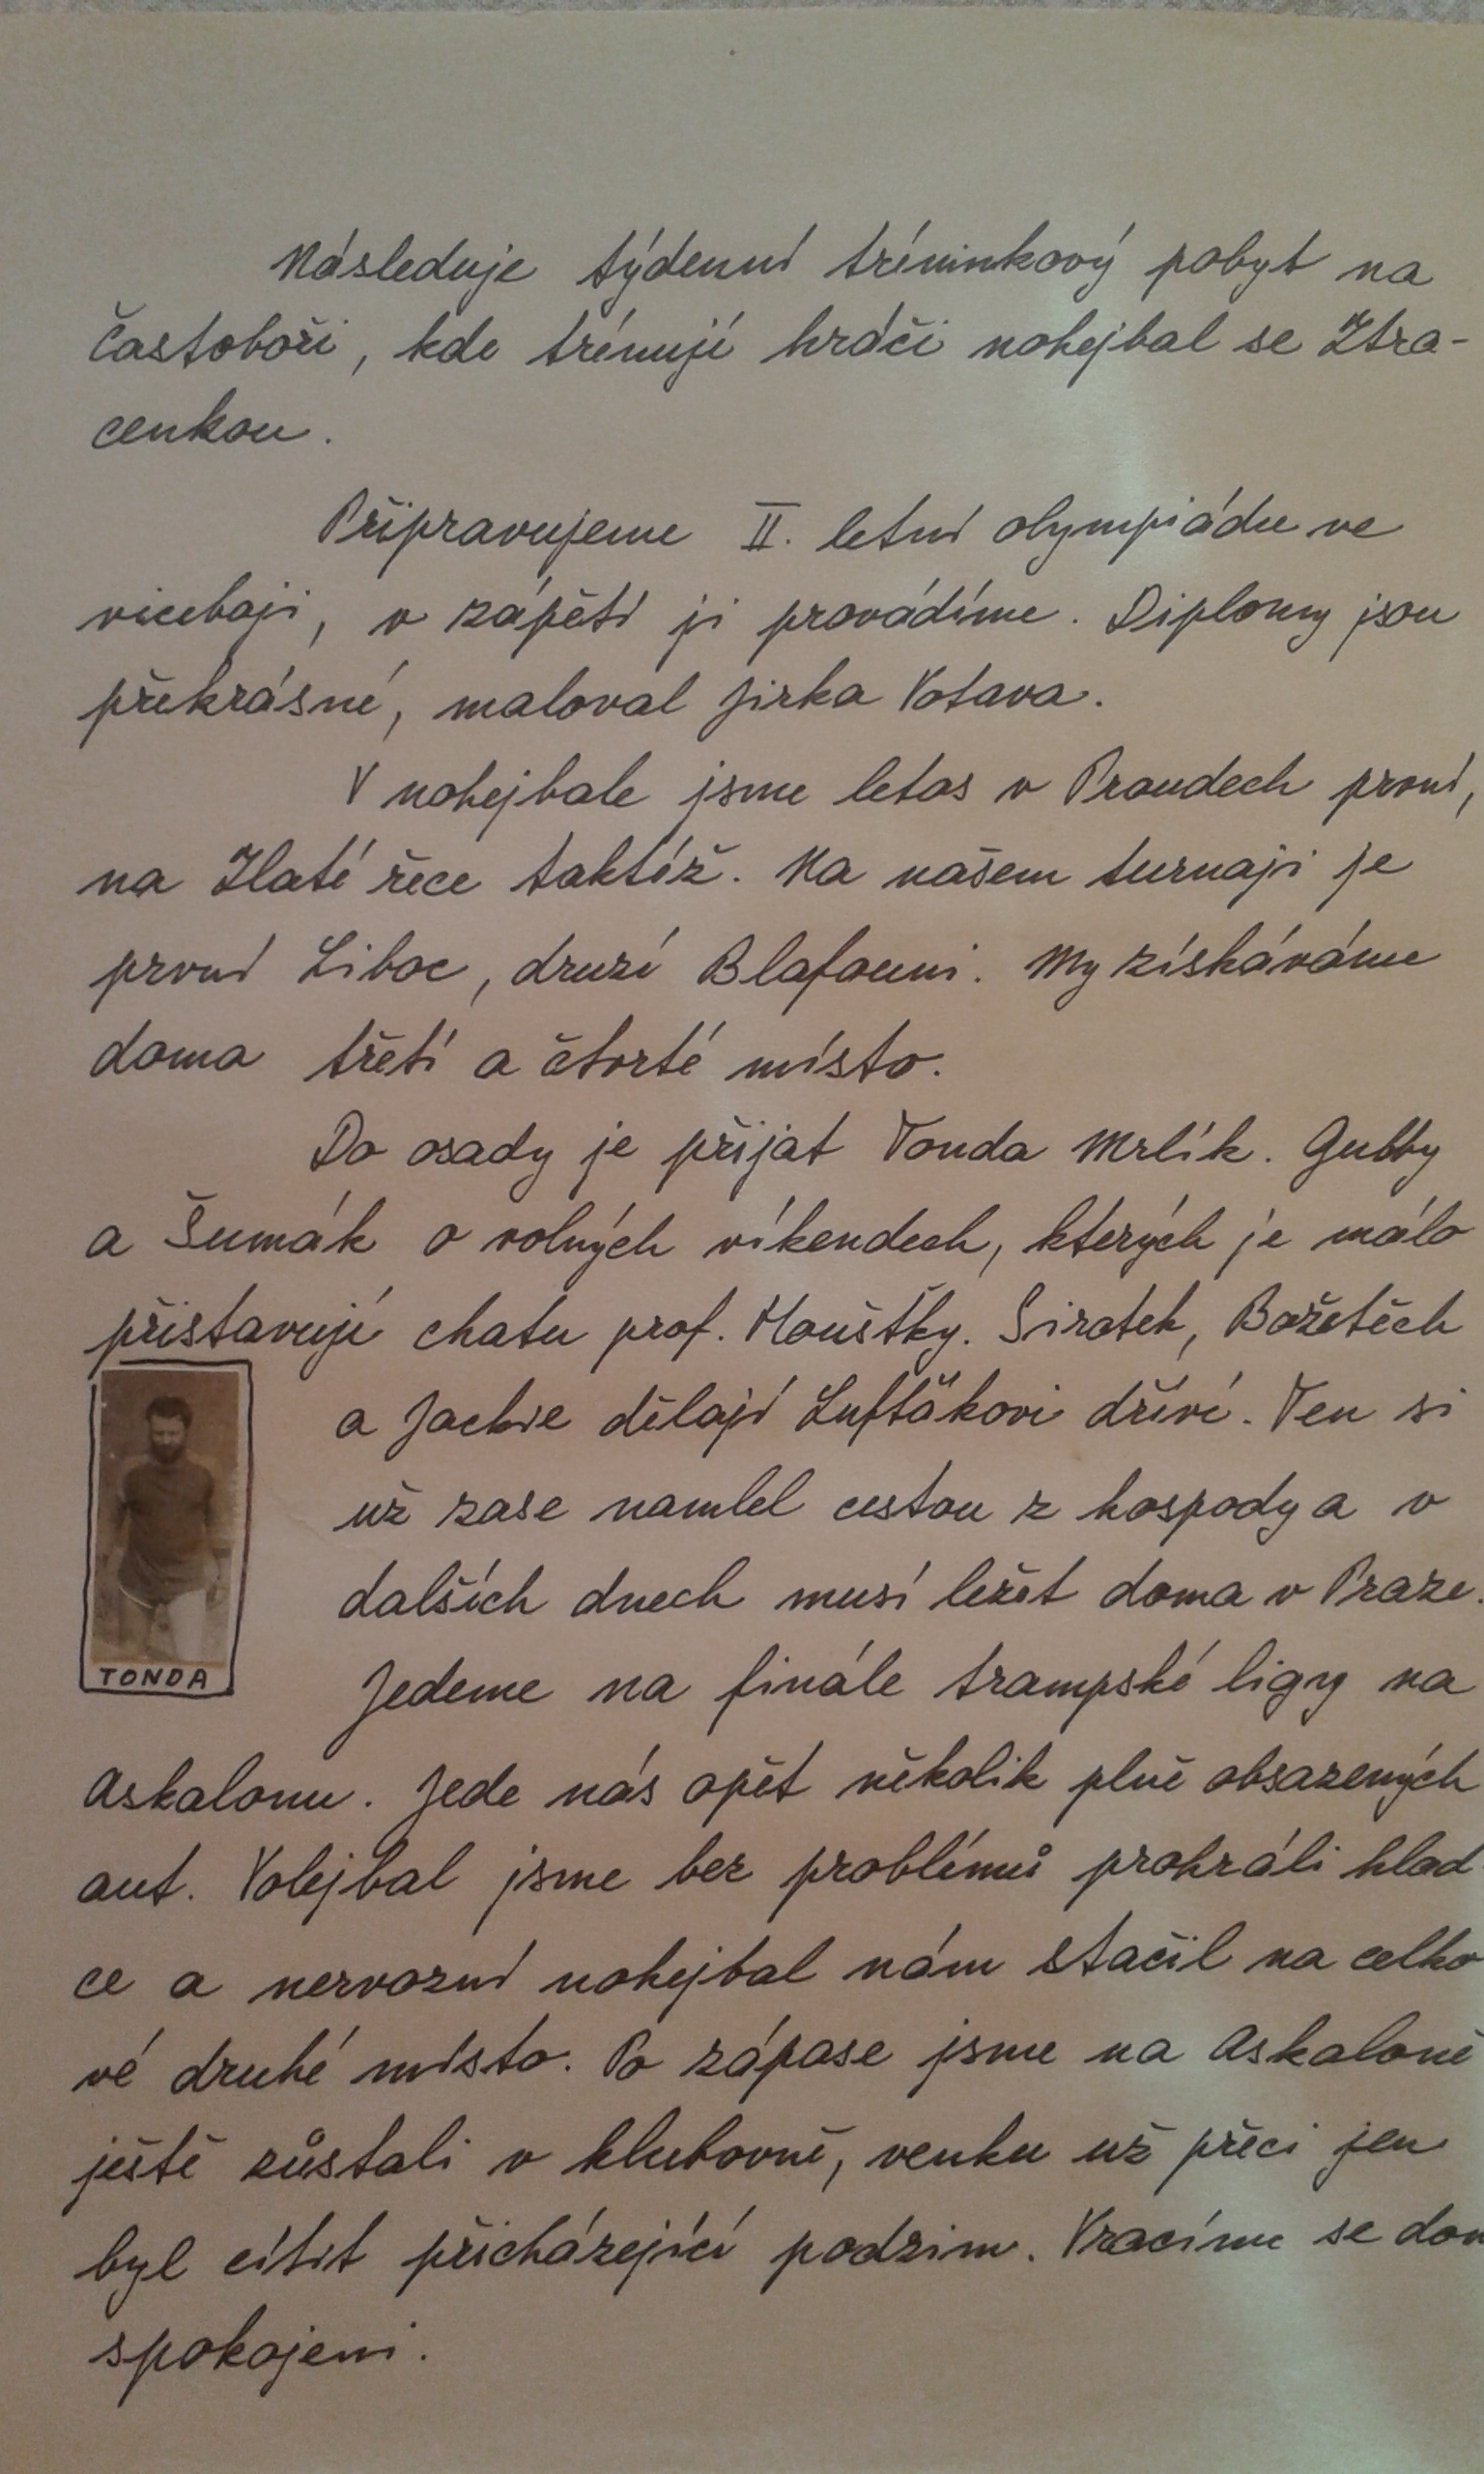 Následuje týdenní tréninkový pobyt na
Častoboři, kde trénují hráči nohejbal se Ztra-
cenkou.
Připravujeme II. letní olympiádu ve
víceboji, v zápětí ji provádíme. Diplomy jsou
překrásné, maloval Jirka Votava.
V nohejbale jsme letos v Proudech první,
na Zlaté řece taktéž. Na našem turnaji je
první Liboc, druzí Blafouni. My získáváme
doma třetí a čtvrté místo.
Do osady je přijat Tonda Mrlík. Gubby
a Šumák o volných víkendech, kterých je málo
přistavují chatu prof. Houštky. Sirotek, Božetěch
a Jackie dělají Lufťákovi dříví. Ten si
už zase namlel cestou z hospody a v
dalších dnech musí ležet doma v Praze.
TONDA
Jedeme na finále trampské ligy na
Askalonu. Jede nás opět několik plně obsazených
aut. Volejbal jsme bez problémů prohráli hlad
ce a nervozní nohejbal nám stačil na celko
vé druhé místo. Po zápase jsme na Askaloně
ještě zůstali v klubovně, venku už přeci jen
byl cítit přicházející podzim. Vracíme se dom
spokojeni.